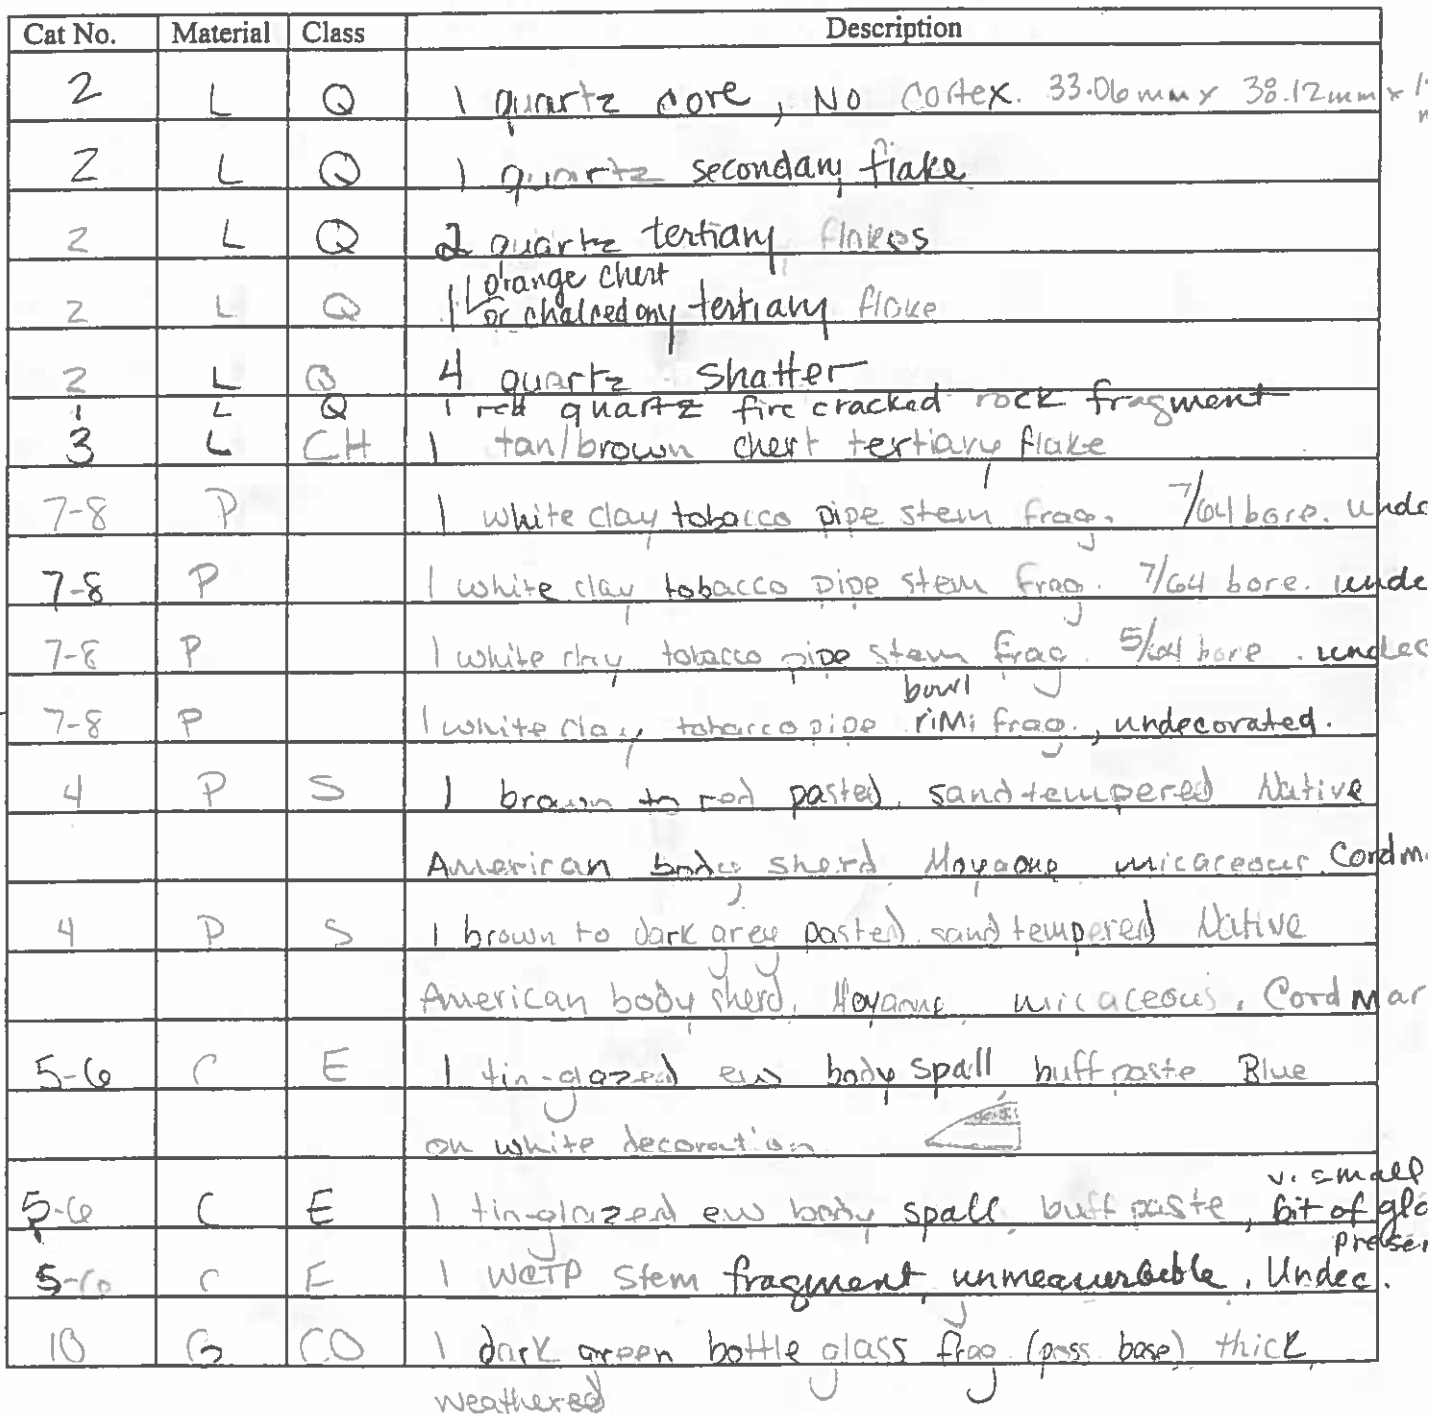 Cat No. Material Class Description
2 L Q 1 quartz core, No cortex. 33.06mm x 38.12mm x
2 L Q 1 quartz secondary flake
2 L Q 2 quartz tertiary flakes
orange chert
2 L Q 1 or chalcedony tertiary flake
2 L Q 4 quartz shatter
1 L Q 1 red quartz fire cracked rock fragment
3 L CH 1 tan/brown chert tertiary flake
7-8 P 1 white clay tobacco pipe stem frag. 7/64 bore. unde
7-8 P 1 white clay tobacco pipe stem frag. 7/64 bore. unde
7-8 P 1 white clay tobacco pipe stem frag. 5/64 bore. undec
bowl
7-8 P 1 white clay tobacco pipe rim frag., undecorated.
4 P S 1 brown to red pasted, sand tempered Native
American body sherd Moyaone micaceous Cord m
4 P S 1 brown to dark grey pasted, sand tempered Native
American body sherd, Moyaone micaceous, Cord Mar
5-6 C E 1 tin-glazed ew body spall, buff paste Blue
on white decoration
v. small
5-6 C E 1 tin-glazed ew body spall, buff paste, bit of gla
presen
5-6 C E 1 WCTP Stem fragment, unmeaurbeble, Undec.
10 G CO 1 dark green bottle glass frag (poss. base) thick
weathered